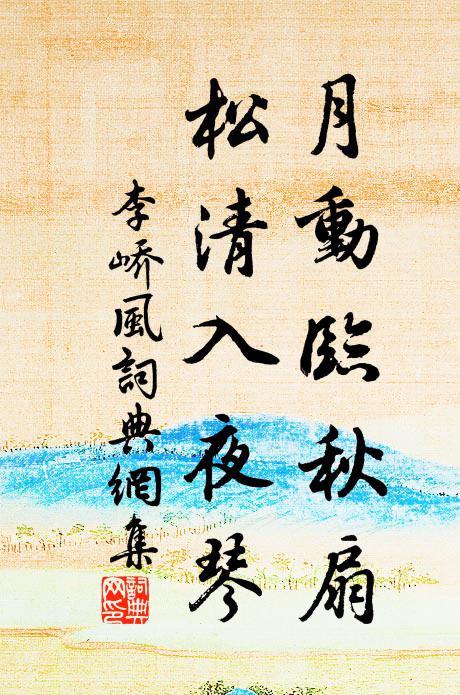 月動臨秋扇
松清入夜琴
李嶠風詞典網集
詞典